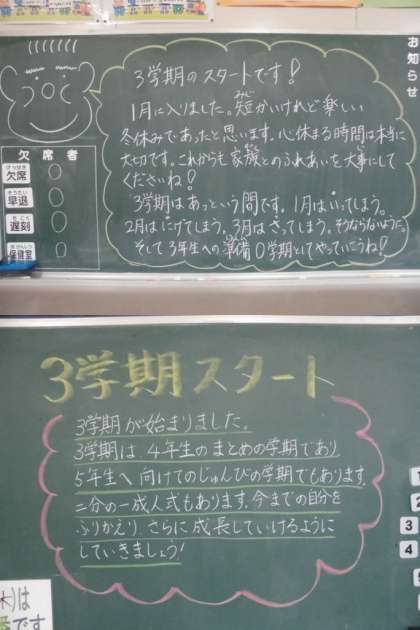 お知らせ
3学期のスタートです!
1月に入りました。短かいけれど楽しい
みじ
冬休みであったと思います。心休まる時間は本当に
大切です。これからも家族とのふれあいを大事にして
くださいね!
3学期はあっという間です。1月はいってしまう。
2月はにげてしまう。3月はさってしまう。そうならないように。
そして3年生への準備0学期としてやっていこうね!
欠席者
欠席
けっせき
早退
そうたい
遅刻
ちこく
保健室
ほけんしつ
3学期スタート
3学期が始まりました。
3学期は、4年生のまとめの学期であり
5年生へ向けてのじゅんびの学期でもあります。
二分の一成人式もあります。今までの自分を
ふりかえり、さらに成長していけるように
していきましょう!
1
2
3
4
(木)は
です